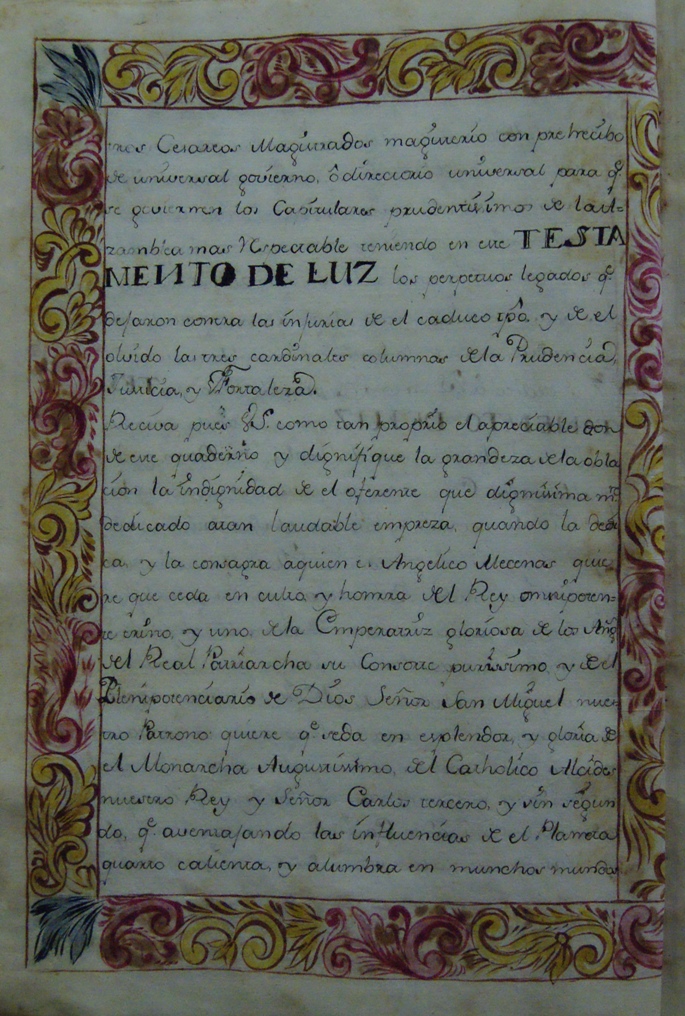 tres Cesareos Magistrados magisterio con pretecibo
de universal govierno, ô direciorio universal para q.e
se goviernen los Capitulares prudentissimos de la Il=
zamblea mas Respectable teniendo en este TESTA
MENTO DE LUZ los perpetuos legados q.e
dejaron contra las injurias de el caduco tpô. y de el
olvido las tres cardinales columnas de la Prudencia,
Justicia, y Fortaleza.
Reciva pues V.S. como tan proprio el apreciable don
de este quaderno y dignifique la grandeza de la obla
ción la indignidad de el oferente que dignissima m.te
dedicado atan laudable empreza, quando la dedi
ca, y la consagra aquien el Angelico Mecenas quie
re que ceda en culto y honrra del Rey omnipoten=
te trino, y uno, de la Emperatriz gloriosa de los Ang.s
del Real Patriarcha su Consorte purissimo, y de el
Plenipotenciario de Dios Señor San Miguel nues
tro Patrono quiere q.e seda en esplendor, y gloria de
el Monarcha Augustissimo, del Catholico Alcides
nuestro Rey y Señor Carlos tercero, y sin segun
do, q.e aventajando las influencias de el Planeta
quarto calienta, y alumbra en munchos mundos